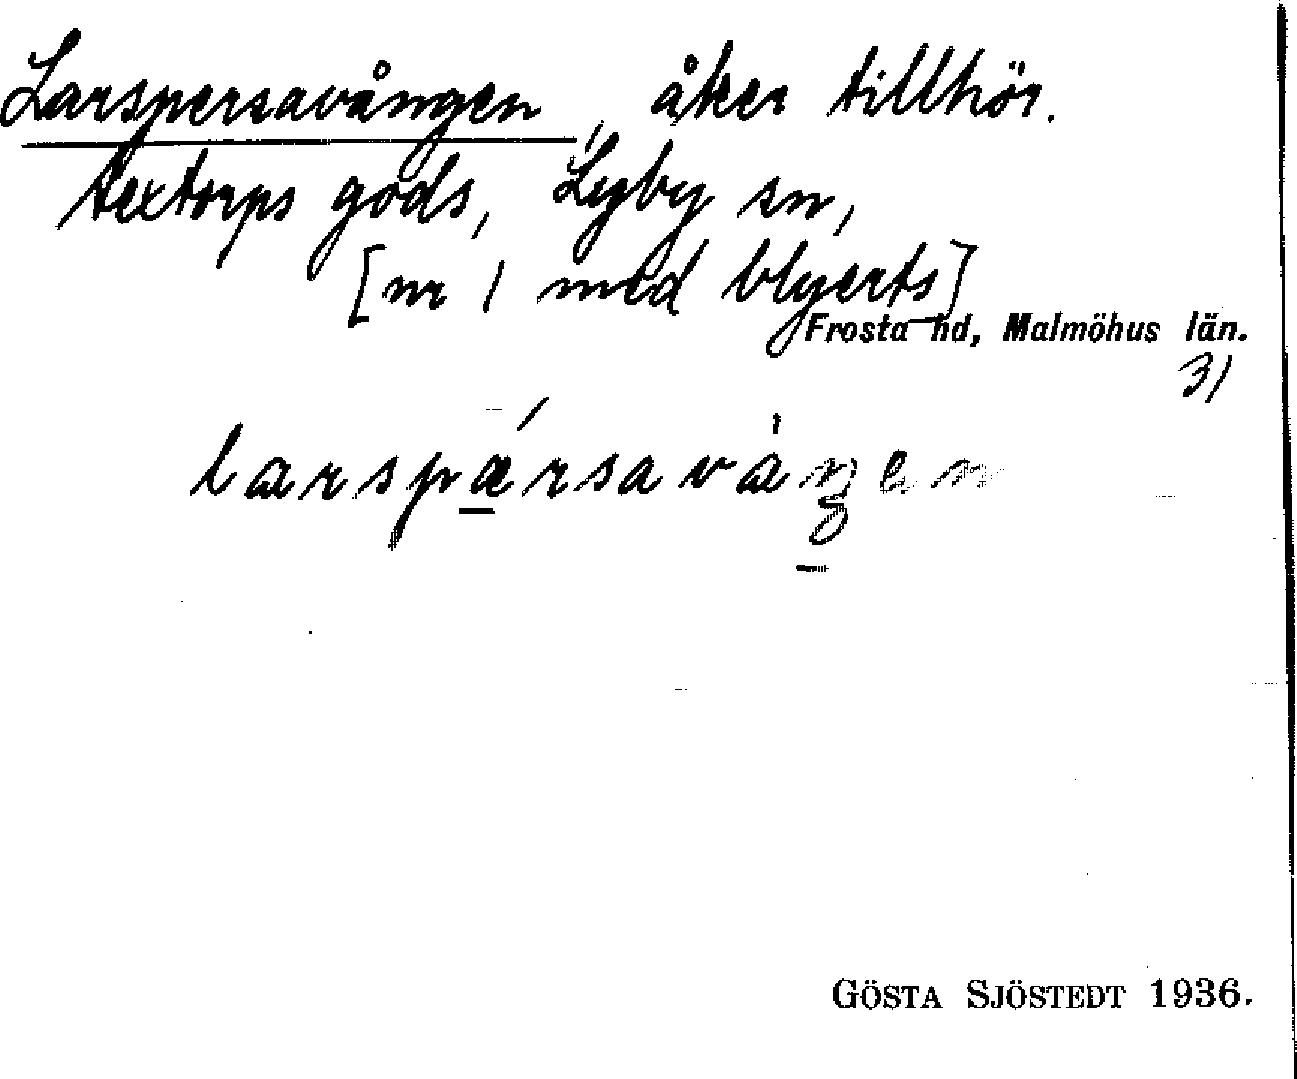 Larspersavången, åker tillhör.
textorps gods, Lyby sn,
[nr 1 med blyerts]
Frosta hd, Malmöhus län.
31
larspærsavåŋen
GÖSTA SJÖSTEDT 1936.